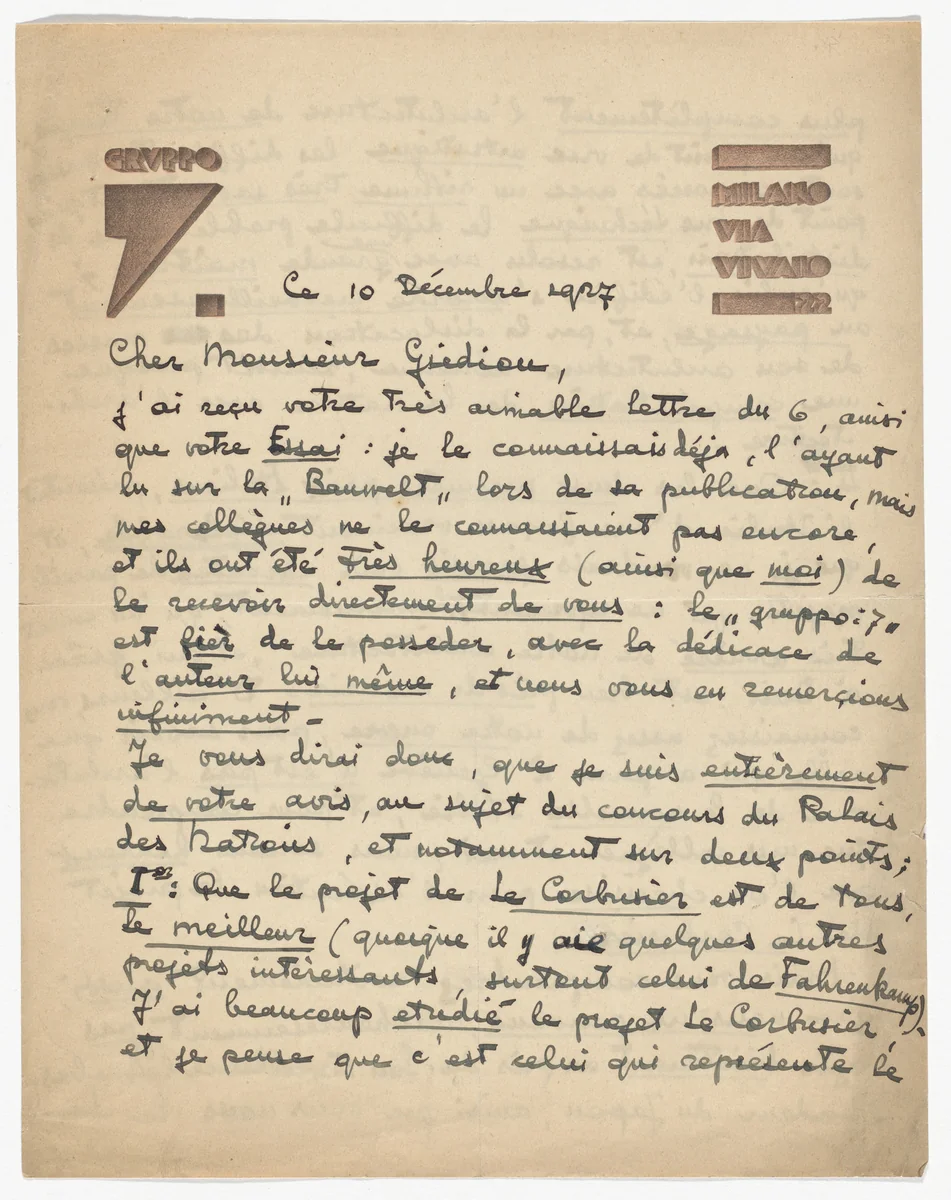 GRVPPO
7.
MILANO
VIA
VIVAIO
22
Ce 10 Décembre 1927
Cher Monsieur Giedion,
j'ai reçu votre très aimable lettre du 6, ainsi
que votre Essai : je le connaissais déja, l'ayant
lu sur la „Bauwelt„ lors de sa publication, mais
mes collègues ne le connaissaient pas encore,
et ils ont été très heureux (ainsi que moi) de
le recevoir directement de vous : le „gruppo:7„
est fièr de le posseder, avec la dédicace de
l'auteur lui même, et nous vous en remerçions
infiniment -
Je vous dirai donc, que je suis entièrement
de votre avis, au sujet du concours du Palais
des Nations, et notamment sur deux points;
Ier: Que le projet de Le Corbusier est de tous,
le meilleur (quoique il y aie quelques autres
projets intèressants, surtout celui de Fahrenkamp).
J'ai beaucoup etudié le projet Le Corbusier,
et je pense que c'est celui qui représente le